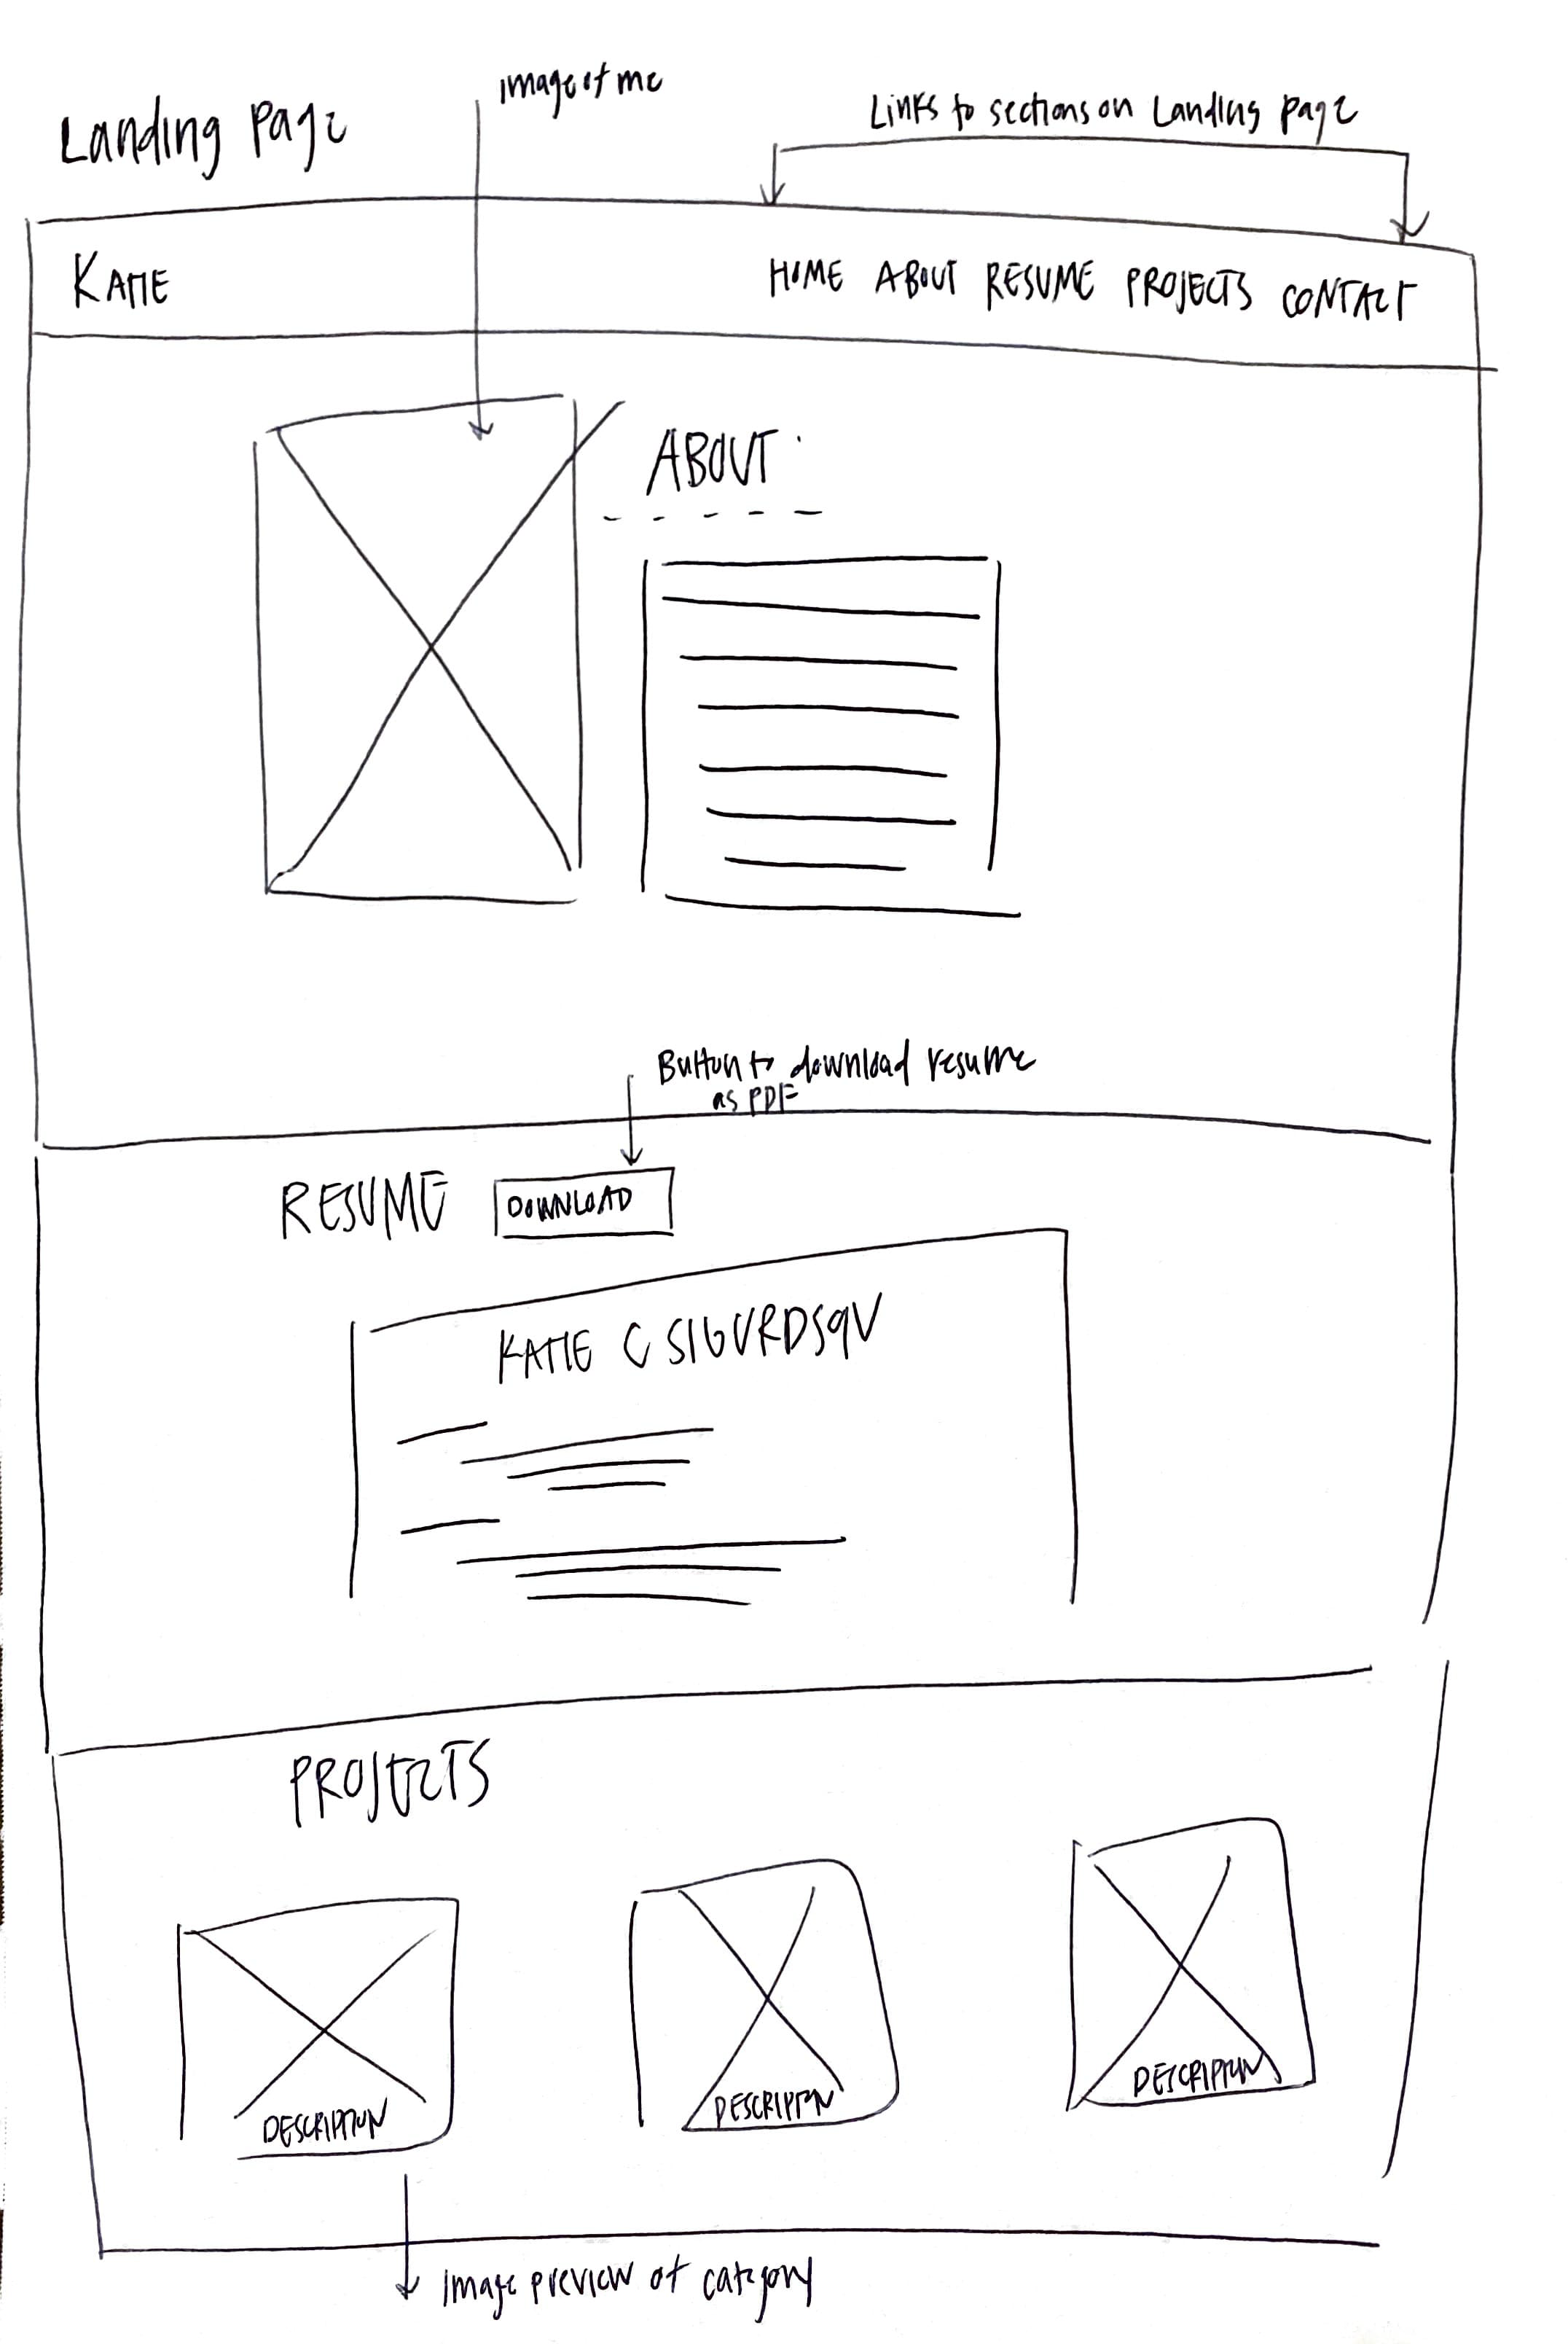 Image of me
Landing Page
Links to sections on Landing page
KATIE
HOME ABOUT RESUME PROJECTS CONTACT
ABOUT
Button to download resume
as PDF
RESUME
DOWNLOAD
KATIE C
PROJECTS
DESCRIPTION
DESCRIPTION
DESCRIPTION
Image preview of category